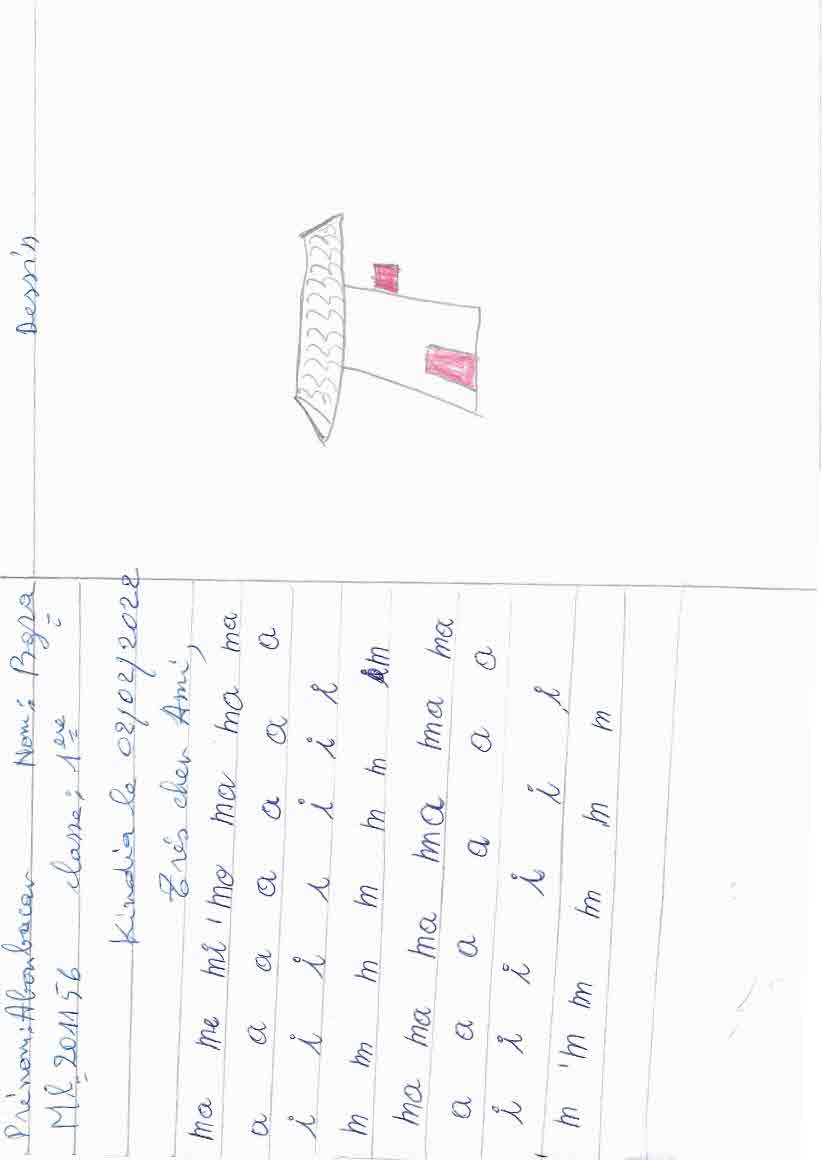 Prénom: Aboubacar Nom: Bgra
Mle 201156 classe: 1ere
Kindia le 02/02/2022
Très cher Ami,
ma me mi mo ma ma ma
a a a a a a a
i i i i i i i
m m m m m m m
ma ma ma ma ma ma
a a a a a a
i i i i i i
m m m m m m
Dessin